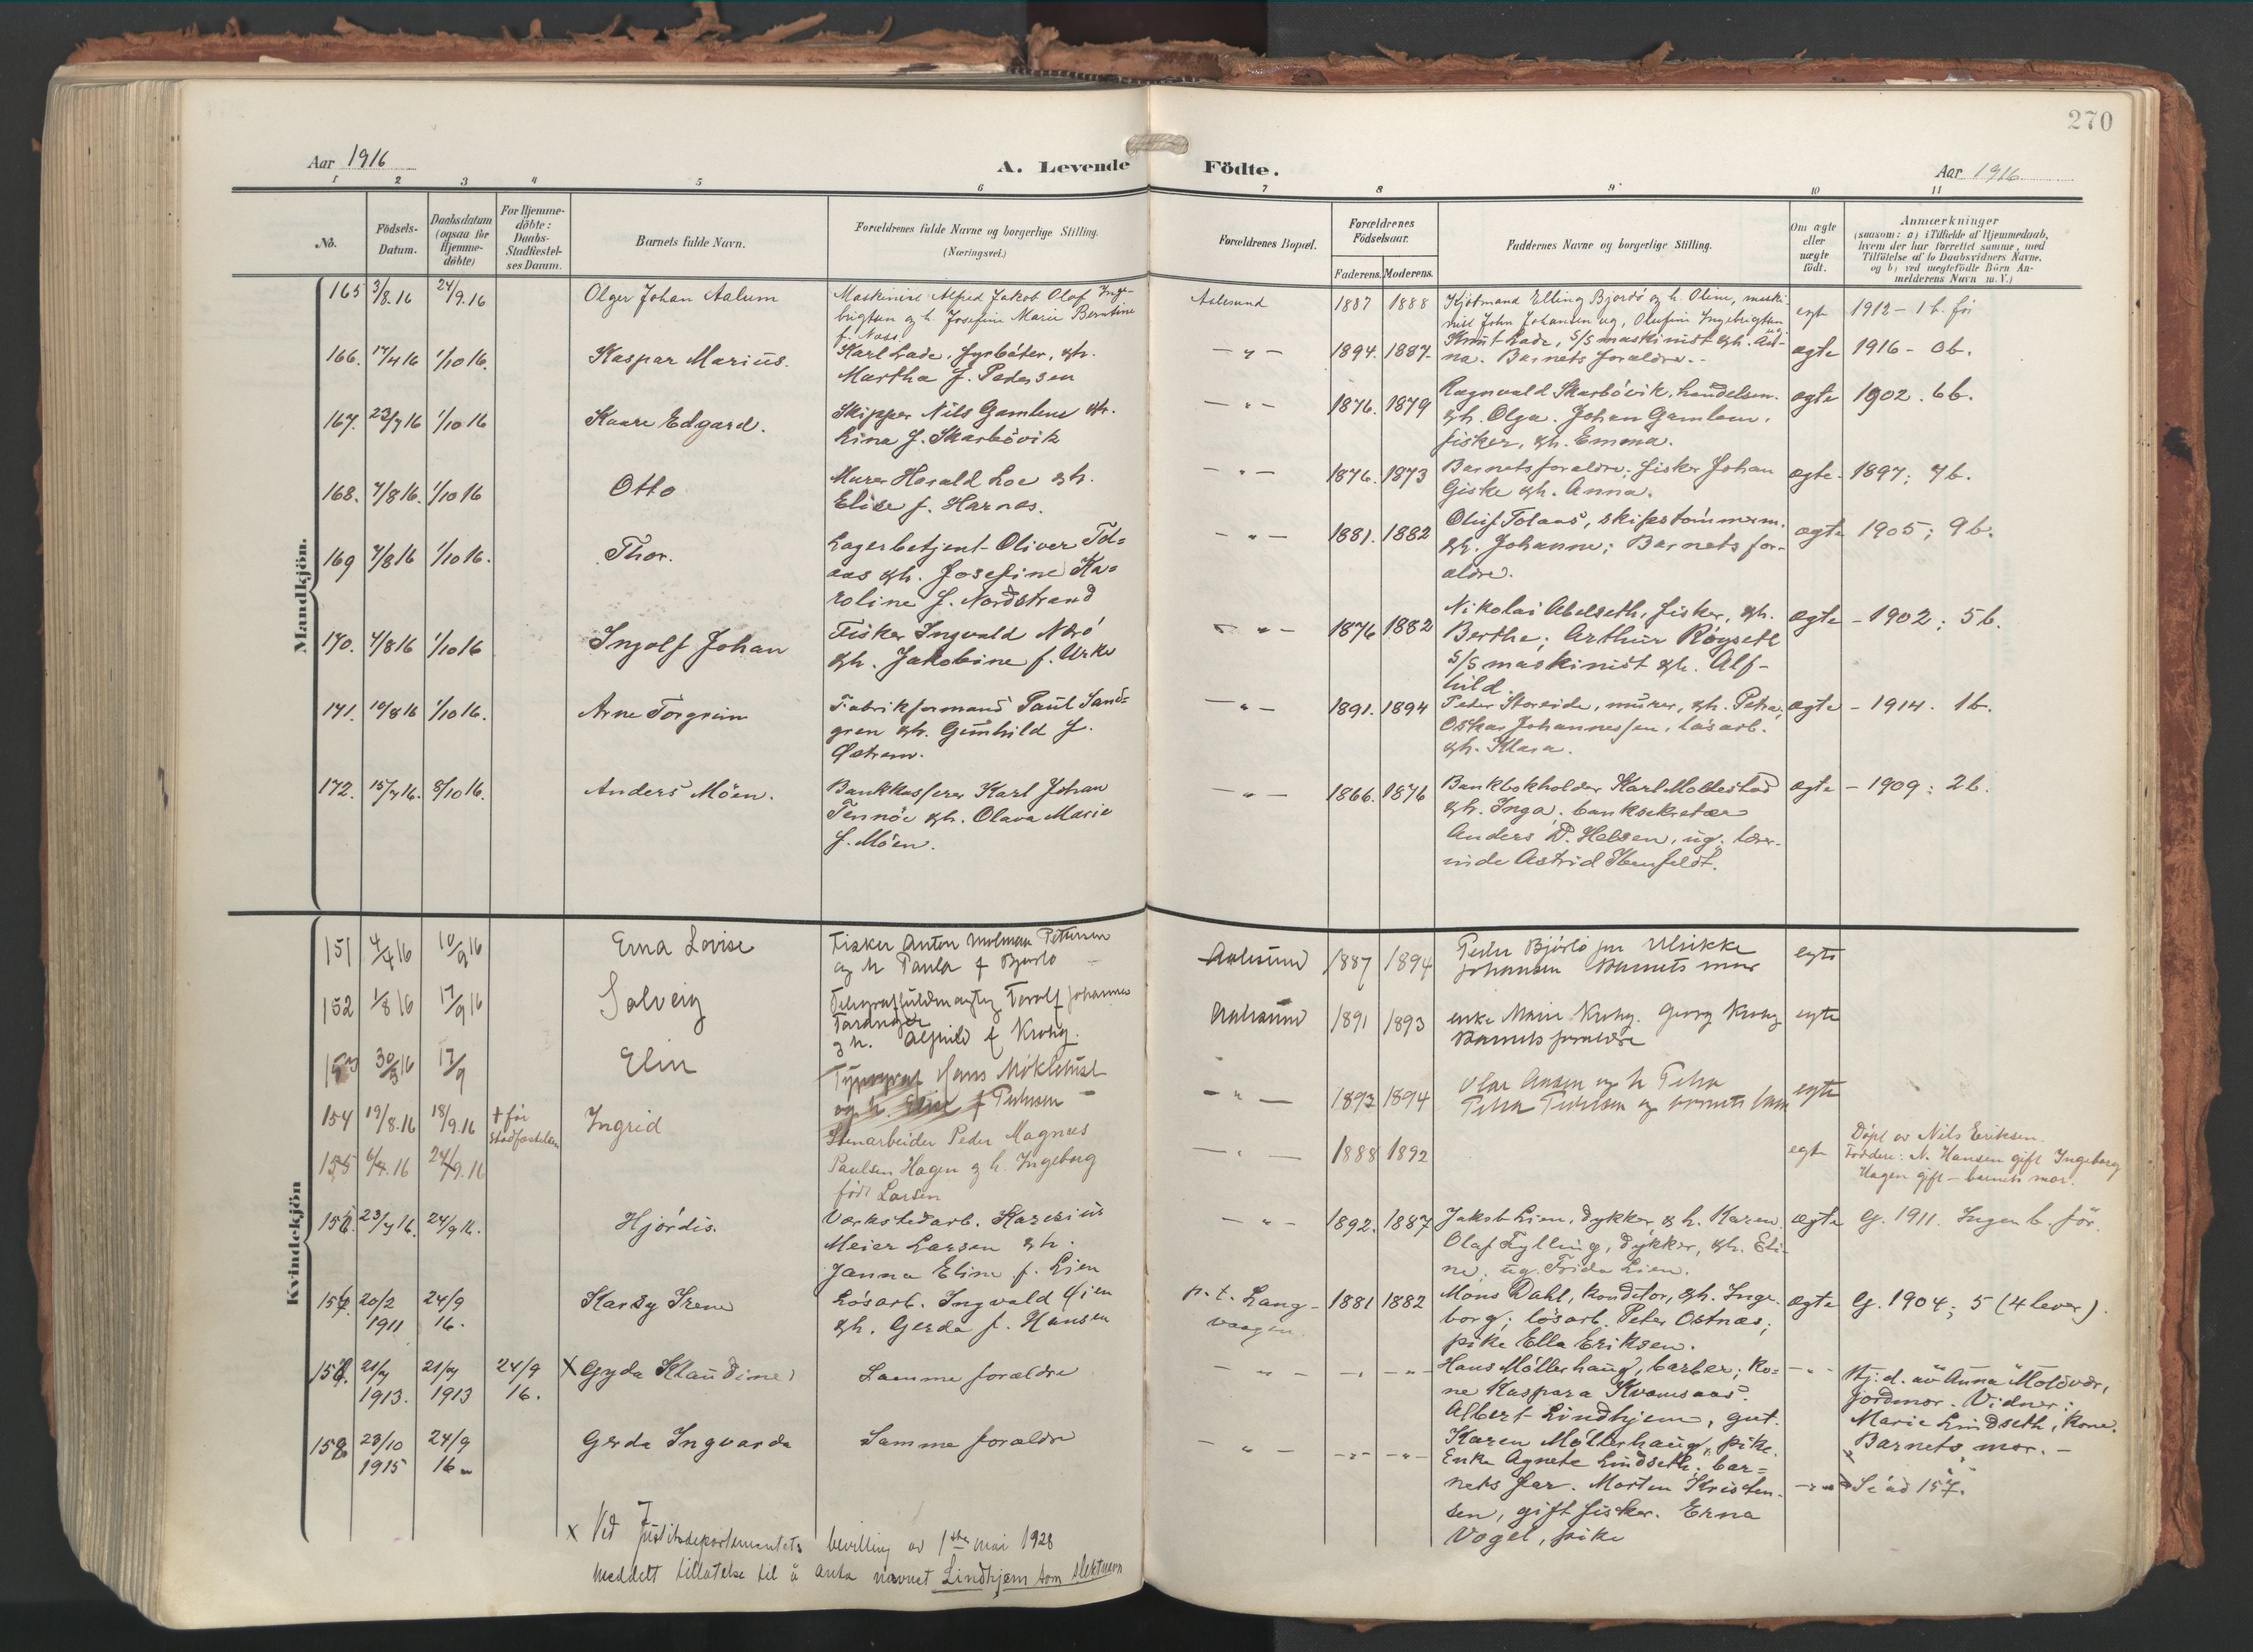 270
Aar 1916
A. Levende Födte.
Aar 1916
1 2 3 4 5 6 7 8 9 10 11
No.
Födsels-
Datum.
Daabsdatum
(ogsaa for
Hjemme-
döbte)
For Hjemme-
döbte:
Daabs-
Stadfæstel-
ses Datum.
Barnets fulde Navn.
Forældrenes fulde Navne og borgerlige Stilling.
(Næringsvei.)
Forældrenes Bopæl.
Forældrenes
Födselsaar.
Faderens. Moderens.
Faddernes Navne og borgerlige Stilling.
Om ægte
eller
uægte
födt.
Anmærkninger
(saasom: a) i Tilfælde af Hjemmedaab,
hvem der har forrettet samme, med
Tilföielse af to Daabsvidners Navne,
og b) ved uægtefödte Börn An-
melderens Navn m. V.)
Mandkjön.
165 3/8.16 24/9.16 Olger Johan Aalum
Maskinist Alfred Jakob Olaf Inge-
brigtsen og h. Josefine Marie Berntine
f. Nass
Aalesund 1887 1888
Kjötmand Elling Bjordö og h. Oline, maski-
nist John Johansen ug, Olufine Ingebrigtsen ug
egte 1912 - 1 b. för
166. 17/4 16 1/10 16. Kaspar Marius.
Karl Lade, fyrböter, &h.
Martha f. Pedersen
- " - 1894. 1887.
Knut Lade, s/s maskinist &h. An-
na. Barnets forældre.
ægte 1916 - 0 b.
167. 23/7 16 1/10 16 Kaare Edgard.
Skipper Nils Gamlem &h.
Lina f. Skarbövik
- " - 1876. 1879
Ragnvald Skarbövik, handelsm.
&h. Olga. Johan Gamlem,
fisker, &h. Emma.
ægte 1902. 6 b.
168. 7/8 16. 1/10 16 Otto
Murer Harald Loe &h.
Elise f. Harnes.
- " - 1876. 1873
Barnets forældre; fisker Johan
Giske &h. Anna.
ægte - 1897; 7 b.
169 7/8 16 1/10 16. Thor.
Lagerbetjent Oliver Tol-
aas &h. Josefine Ka-
roline f. Nordstrand
- " - 1881. 1882
Oluf Tolaas, skipstömmerm.
&h. Johanne; Barnets for-
ældre.
ægte 1905; 9 b.
170. 7/8 16 1/10 16 Ingolf Johan
Fisker Ingvald Nærö
&h. Jakobine f. Urke
- " - 1876 1882
Nikolai Abelseth, fisker, &h.
Berthe; Arthur Röyseth
s/s maskinist &h. Alf-
hild.
ægte - 1902; 5 b.
171. 10/8 16 1/10 16. Arne Torgrim
Fabrikformand Paul Sand-
gren &h. Gunhild f.
Østrem.
- " - 1891. 1894
Peder Storeide, murer, &h. Petra;
Oskar Johannessen, lösarb.
&h. Klara.
ægte - 1914. 1 b.
172. 15/7 16. 8/10 16. Anders Möen.
Bankkasserer Karl Johan
Tennöe &h. Olava Marie
f. Möen.
- " - 1866. 1876
Bankbokholder Karl Mollestad
&h. Inga; banksekretær
Anders D. Helsen, ug; lærer-
inde Astrid Ibenfeldt.
ægte - 1909: 2 b.
Kvindekjön
151 4/4 16 10/9 16 Erna Lovise
Fisker Anton Pettersen
og h Paula f Bjorlo
Aalesund 1887 1894
Peder Björlö Ulrikke
Johansen Barnets mor
egte
152 1/8 16 17/9 16 Solveig
Telegraffuldmægtig Torolf Johannes
Taranger
g h. Alfhild f Krohg.
Aalesund 1891 1893
enke Marie Krohg. Georg Krohg
Barnets forældre
egte
153 30/3 16 17/9 Elin
Typograf Hans Möklebust
og h. Elise f Pedersen
- " - 1893 1894
Olar Ansen og h Petra
Petra Pedersen og barnets far
egte
154 19/8.16 18/9.16 † för
Stadfæstelsen
Ingrid
155 6/4.16 24/9.16
Stenarbeider Peder Magnus
Paulsen Hagen g h. Ingeborg
född Larsen
- " - 1888 1892
egte
Döpt av Nils Eriksen.
Faddere: N. Hansen gift Ingeborg
Hagen gift - barnets mor.
156. 23/7 16. 24/9 16. Hjördis.
Værkstedarb. Kasesius
Meier Larsen &h.
Janna Eline f. Lien
- " - 1892. 1887
Jakob Lien, dykker, & h. Karen.
Olaf Fylling, dykker, &h. Eli-
ne; ug. Frida Lien.
ægte g. 1911. Ingen b. för.
157. 20/2 1911 24/9 16. Karsy Irene
Lösarb. Ingvald Gien
&h. Gerda f. Hansen
p.t. Lang-
vaagen. 1881 1882
Mons Dahl, konditor, &h. Inge-
borg; lösarb. Peter Ostnæs;
pike Ella Eriksen.
ægte g. 1904; 5 (4 lever).
158. 21/7 1913. 21/7 1913 24/9 16. X Gyda Klaudine
Samme forældre
- " - - " - - " -
Hans Möllerhaug, barber; ko-
ne Kaspara Kvamsaas.
Albert Lindhjem, gut.
Karen Möllerhaug, pike.
- " -
Hj. d. av Anna Molövær,
jordmor. Vidner:
Marie Lindseth, kone.
Barnets mor. -
159 23/10 1915 24/9 16 Gerda Ingvarda
Samme forældre
- " - - " - - " -
Enke Agnete Lindseth. bar-
nets far. Morten Kristen-
sen, gift fisker. Erna
Vogel, pike
- " - Se ad 157.
X Ved Justitsdepartementets bevilling av 1ste mai 1928
meddelt tillatelse til å anta navnet Lindhjem som slektnavn